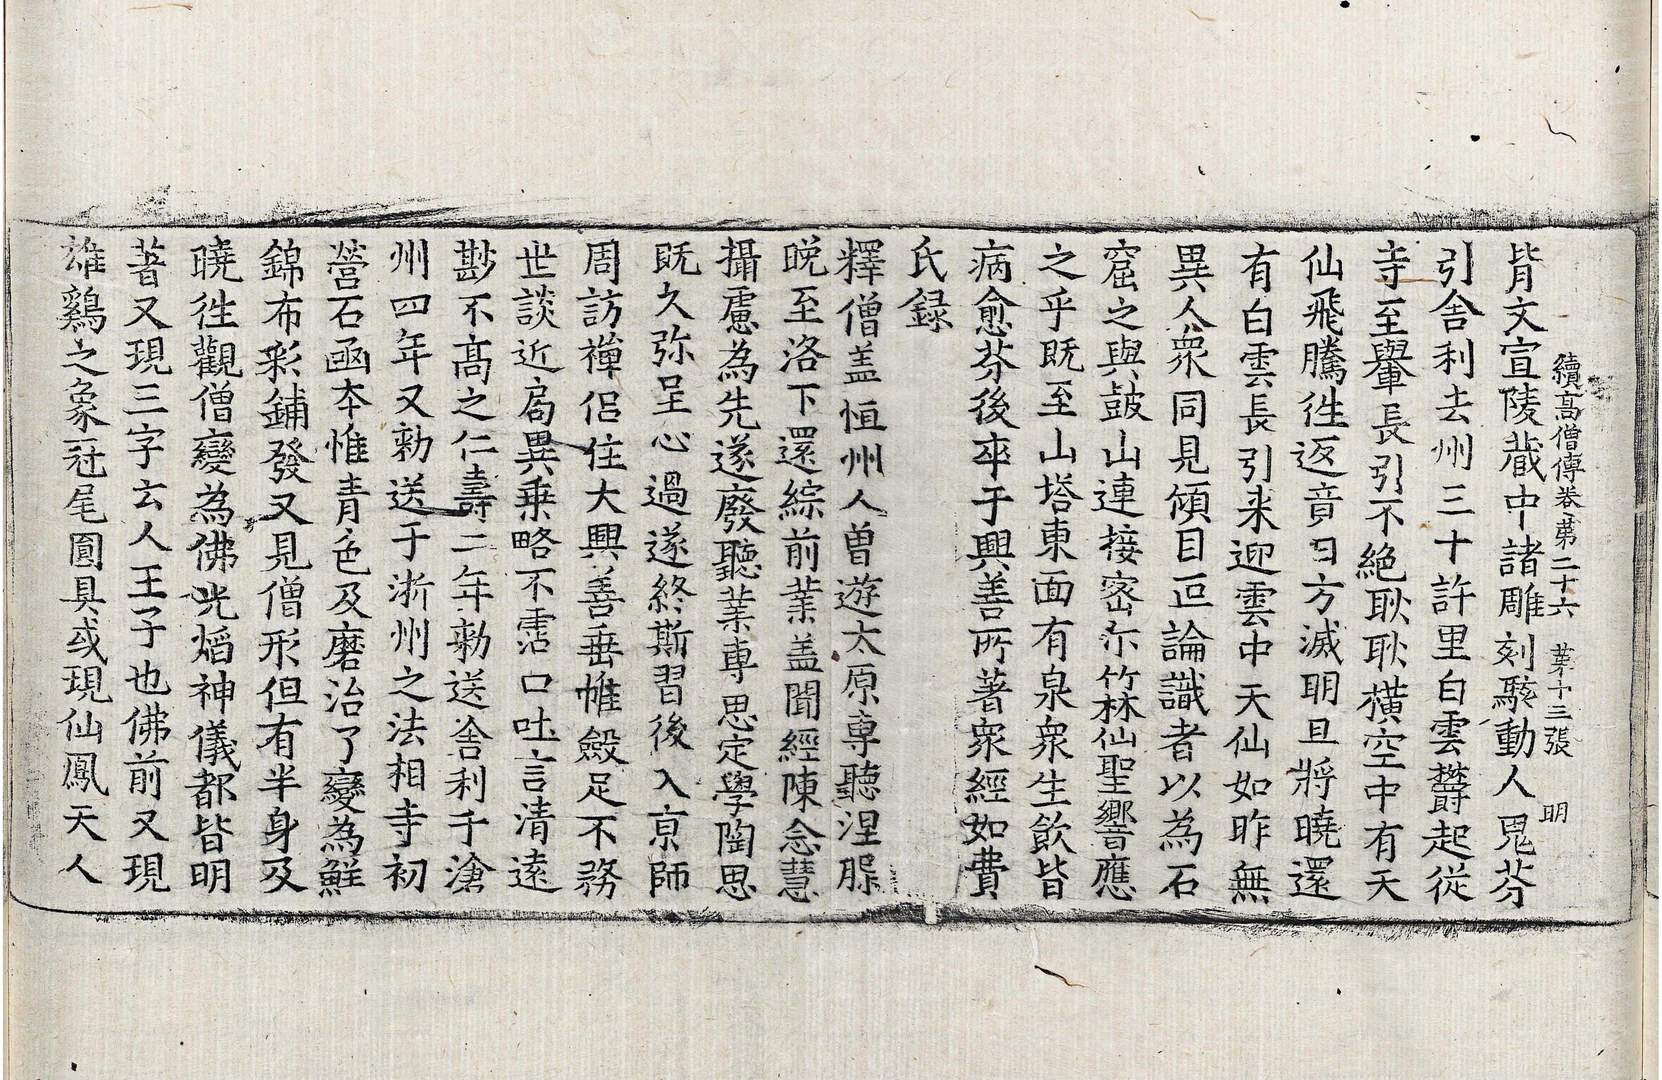 續高僧傳卷第二十六 第十三張 明
皆文宣陵藏中諸雕刻駭動人鬼芬
引舍利去州三十許里白雲欝起從
寺至轝長引不絶耿耿橫空中有天
仙飛騰往返音日方滅明旦將曉還
有白雲長引来迎雲中天仙如昨無
異人衆同見傾目叵論識者以為石
窟之與鼓山連接密尒竹林仙聖響應
之乎既至山塔東面有泉衆生飲皆
病愈芬後卒于興善所著衆經如費
氏録
釋僧盖恒州人曽遊太原專聽涅槃
晚至洛下還綜前業盖聞經陳念慧
攝慮為先遂廢聽業專思定學陶思
既久弥呈心過遂終斯習後入京師
周訪禪侣住大興善垂帷斂足不務
世談近局異乗略不霑口吐言清遠
尠不高之仁壽二年勑送舍利于滄
州四年又勑送于浙州之法相寺初
營石凾本惟青色及磨治了變為鮮
錦布彩鋪發又見僧形但有半身及
曉往觀僧變為佛光焰神儀都皆明
著又現三字云人王子也佛前又現
雄鷄之象冠尾圓具或現仙鳳天人